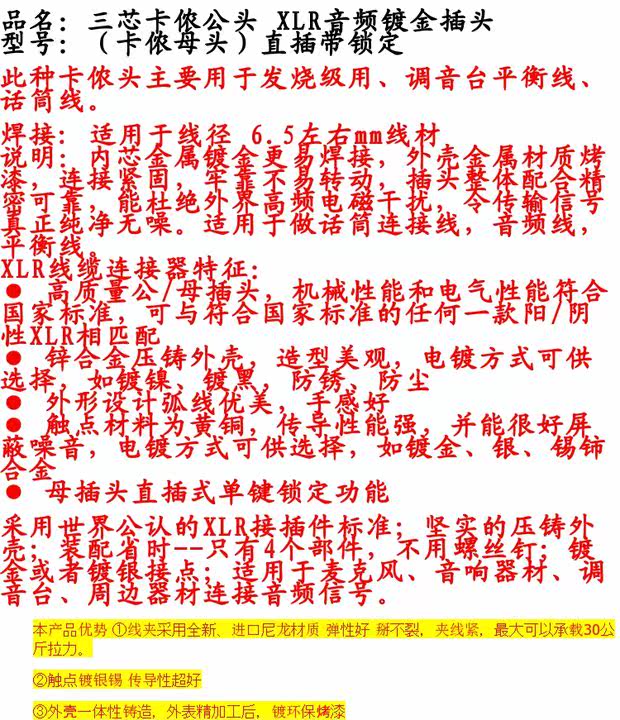 品名：三芯卡侬公头 XLR音频镀金插头
型号：（卡侬母头）直插带锁定
此种卡侬头主要用于发烧级用、调音台平衡线、
话筒线。
焊接：适用于线径 6.5左右mm线材
说明：内芯金属镀金更易焊接，外壳金属材质烤
漆，连接紧固，牢靠不易转动，插头整体配合精
密可靠，能杜绝外界高频电磁干扰，令传输信号
真正纯净无噪。适用于做话筒连接线，音频线，
平衡线。
XLR线缆连接器特征：
● 高质量公/母插头，机械性能和电气性能符合
国家标准，可与符合国家标准的任何一款阳/阴
性XLR相匹配
● 锌合金压铸外壳，造型美观，电镀方式可供
选择，如镀镍、镀黑，防锈、防尘
● 外形设计弧线优美，手感好
● 触点材料为黄铜，传导性能强，并能很好屏
蔽噪音，电镀方式可供选择，如镀金、银、锡铈
合金
● 母插头直插式单键锁定功能
采用世界公认的XLR接插件标准；坚实的压铸外
壳；装配省时--只有4个部件，不用螺丝钉；镀
金或者镀银接点；适用于麦克风、音响器材、调
音台、周边器材连接音频信号。
本产品优势 ①线夹采用全新、进口尼龙材质 弹性好 掰不裂，夹线紧，最大可以承载30公
斤拉力。
②触点镀银锡 传导性超好
③外壳一体性铸造，外表精加工后，镀环保烤漆